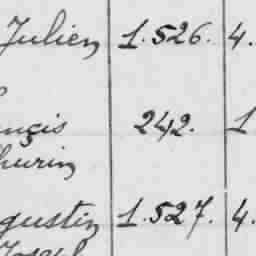 Julien 1.526. 4.
ançis 242. 1
hurin
gustin 1.527. 4.